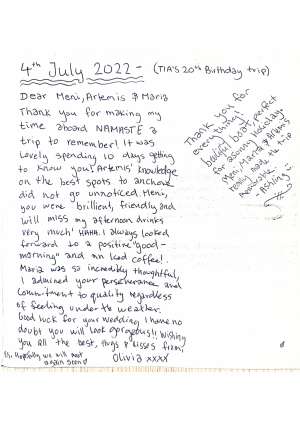 4th July 2022 - (TIA'S 20th Birthday trip)
Dear Meni, Artemis & Maria
Thank you for making my
time aboard NAMASTE a
trip to remember! It was
lovely spending 10 days getting
to know you! Artemis' knowledge
on the best spots to anchor
did not go unnoticed. Meni,
you were brilliant, friendly and
will miss my afternoon drinks
very much! HAHA. I always looked
forward to a positive "good-
morning" and an iced coffee!
Maria was so incredibly thoughtful,
I admired your perseverance and
commitment to quality regardless
of feeling under the weather.
Good luck for your wedding I have no
doubt you will look gorgeous!! Wishing
you all the best, hugs & kisses from:
Olivia xxxx
Hopefully we will meet
again soon
Thank you for
everything!
boat, perfect
for holiday.
Meni, Maria & Artemis
really made the trip
Ashling